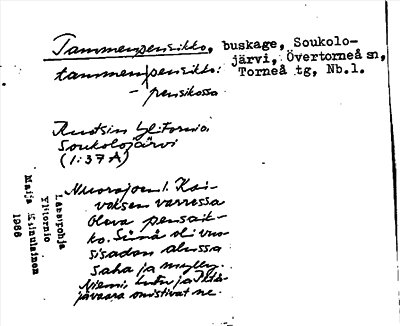 Tammenpensikko, buskage, Soukolo-
järvi, Övertorneå sn,
Torneå tg, Nb.l.
tammen|pensikko:
- pensikossa
Ruotsin Yli-Tornio
Soukolojärvi
(1:37 A)
Nuorajoen l. Kai-
voksen varressa
oleva pensaik-
ko. Siinä oli vuo-
sisadan alussa
saha ja mylly.
Niemi, ja Pitä-
jävaara omistivat ne.
Länsipohja
Ylitornio
Maija Keinulainen
1986